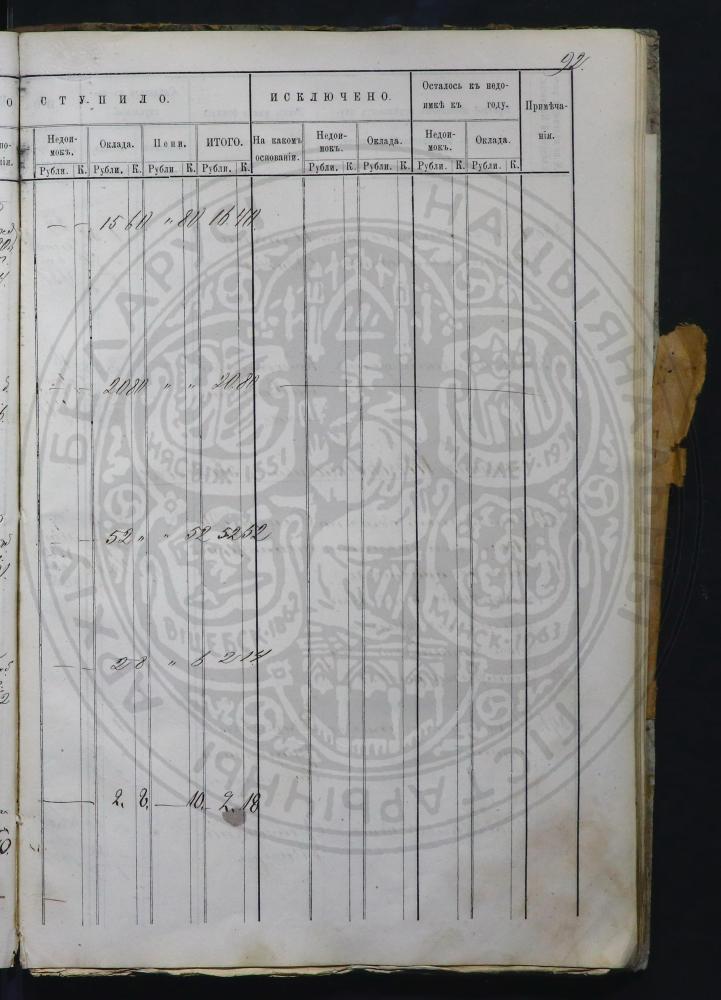 92.
СТУПИЛО.
ИСКЛЮЧЕНО.
Осталось къ недо-
имкѣ къ году.
Примѣча-
нія.
Недои-
мокъ.
Оклада.
Пени.
ИТОГО.
На какомъ
основаніи.
Недои-
мокъ.
Оклада.
Недои-
мокъ.
Оклада.
Рубли. К. Рубли. К. Рубли. К. Рубли. К. Рубли. К. Рубли. К. Рубли. К. Рубли. К.
— — 15 60 " 80 16 40.
— — 20 80 " " 20.80
52 " " 52 52 52
— 2 8 " 6 2 14
— 2. 8. — 10. 2. 18
БЕЛАРУСІ
НАЦЫЯНАЛЬНЫ
ГІСТАРЫЧНЫ
АРХІЎ
НЯСВІЖ·1551
МАГІЛЕЎ·19
ВІЦЕБСК·1862
МІНСК·1963